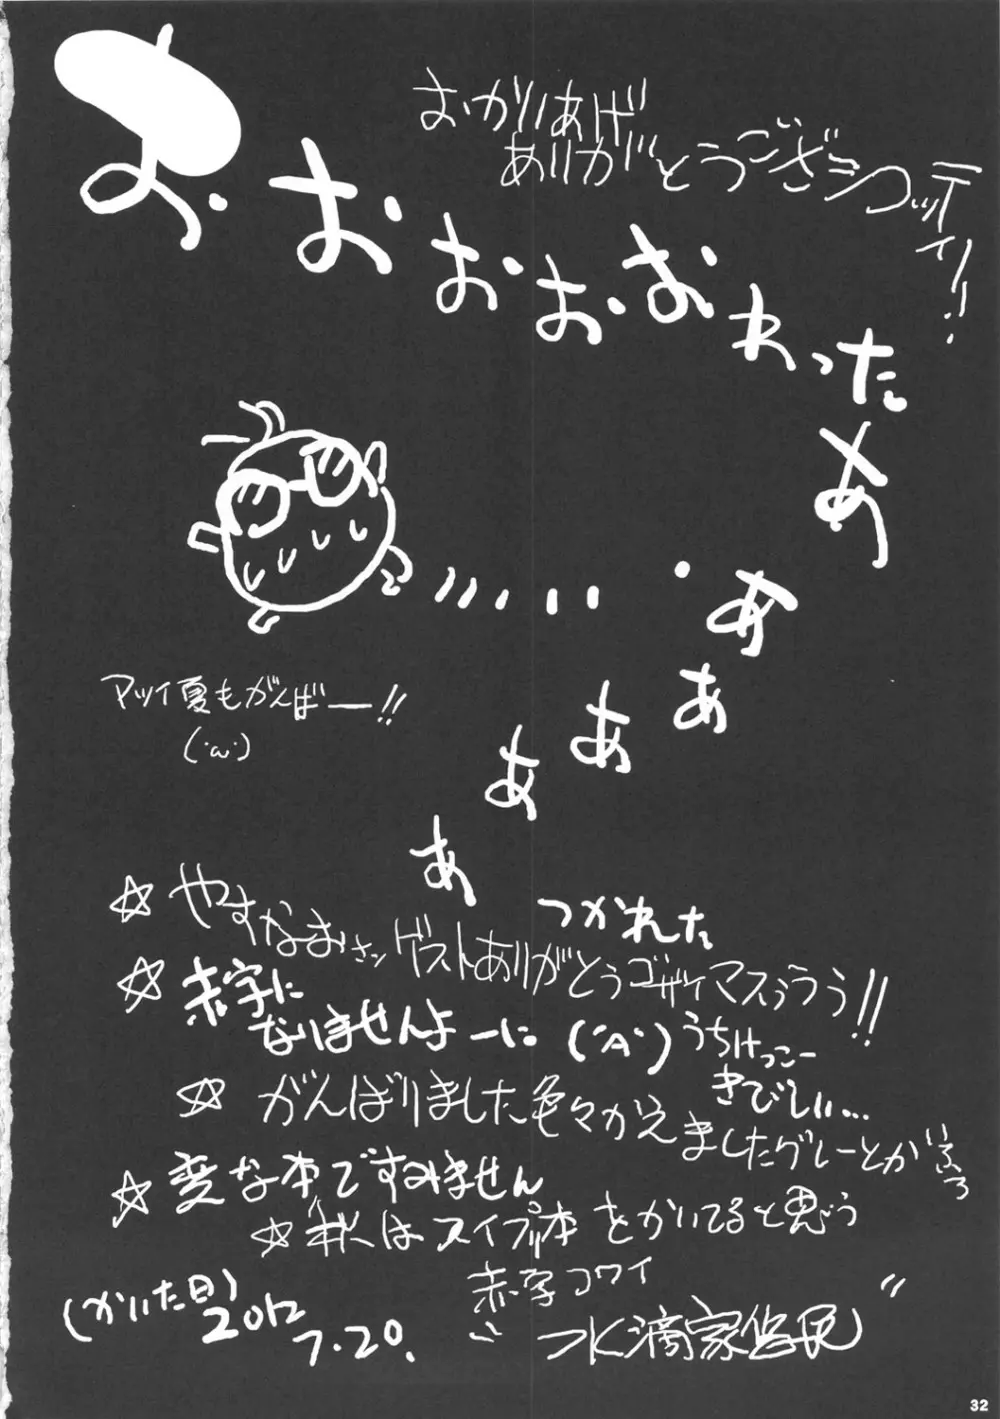 おかいあげ
ありがとうございコッティ!!
お・おおお・おわった
ああああああ
アツイ夏もがんばー!!
(・ω・)
つかれた
☆やすなおさんゲストありがとうゴザイマスぅうう!!
☆赤字に
なりませんよーに(´A`)うちけっこー
きびしい…
☆がんばりました色々かえましたグレーとか
☆変な本ですみません
☆秋はスイプリ本をかいてると思う
赤字コワイ
(かいた日)
2012
7.20.
"水滴家
"
32